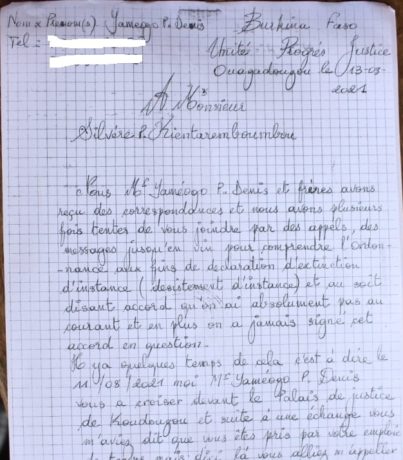 Nom & Prenom(s) Yaméogo P. Denis Burkina Faso
Tel : Unité - Progrès Justice
Ouagadougou le 13-03-
2021
A Monsieur
Silvère P. Kientaremboumbou
Nous Mr Yaméogo P. Denis et frères avons
reçu des correspondances et nous avons plusieurs
fois tenter de vous joindre par des appels, des
messages jusqu'en vin pour comprendre l'Ordon-
-nance aux fins de declaration d'extinction
d'instance (desistement d'instance) et au soit
disant accord qu'on ai absolument pas au
courant et en plus on a jamais signé cet
accord en question.
Il ya quelques temps de cela c'est à dire le
11/08/2021 moi Mr Yaméogo P. Denis
vous a croiser devant le Palais de justice
de Koudougou et suite à une échange vous
m'aviez dit que vous êtes pris par votre emploie
de mais dici là vous alliez m'appeller